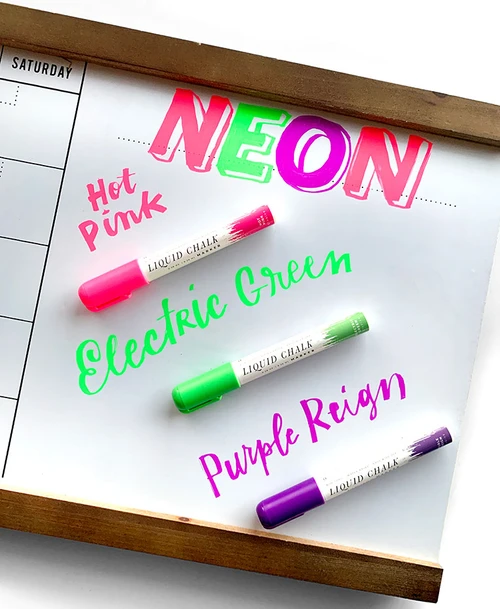 SATURDAY
NEON
Hot
Pink
LIQUID CHALK
MARKER
Electric Green
LIQUID CHALK
MARKER
Purple Reign
LIQUID CHALK